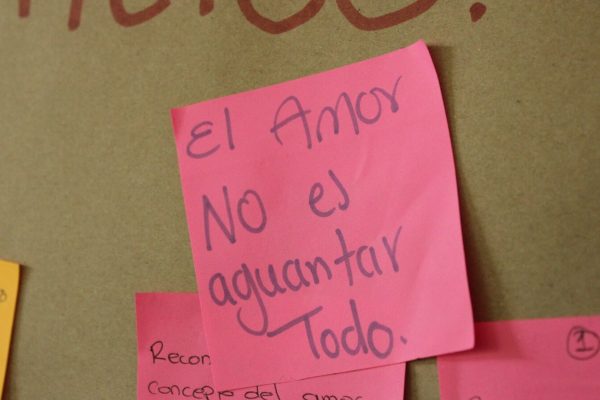 El Amor
No es
aguantar
Todo.
concepto del amor
1